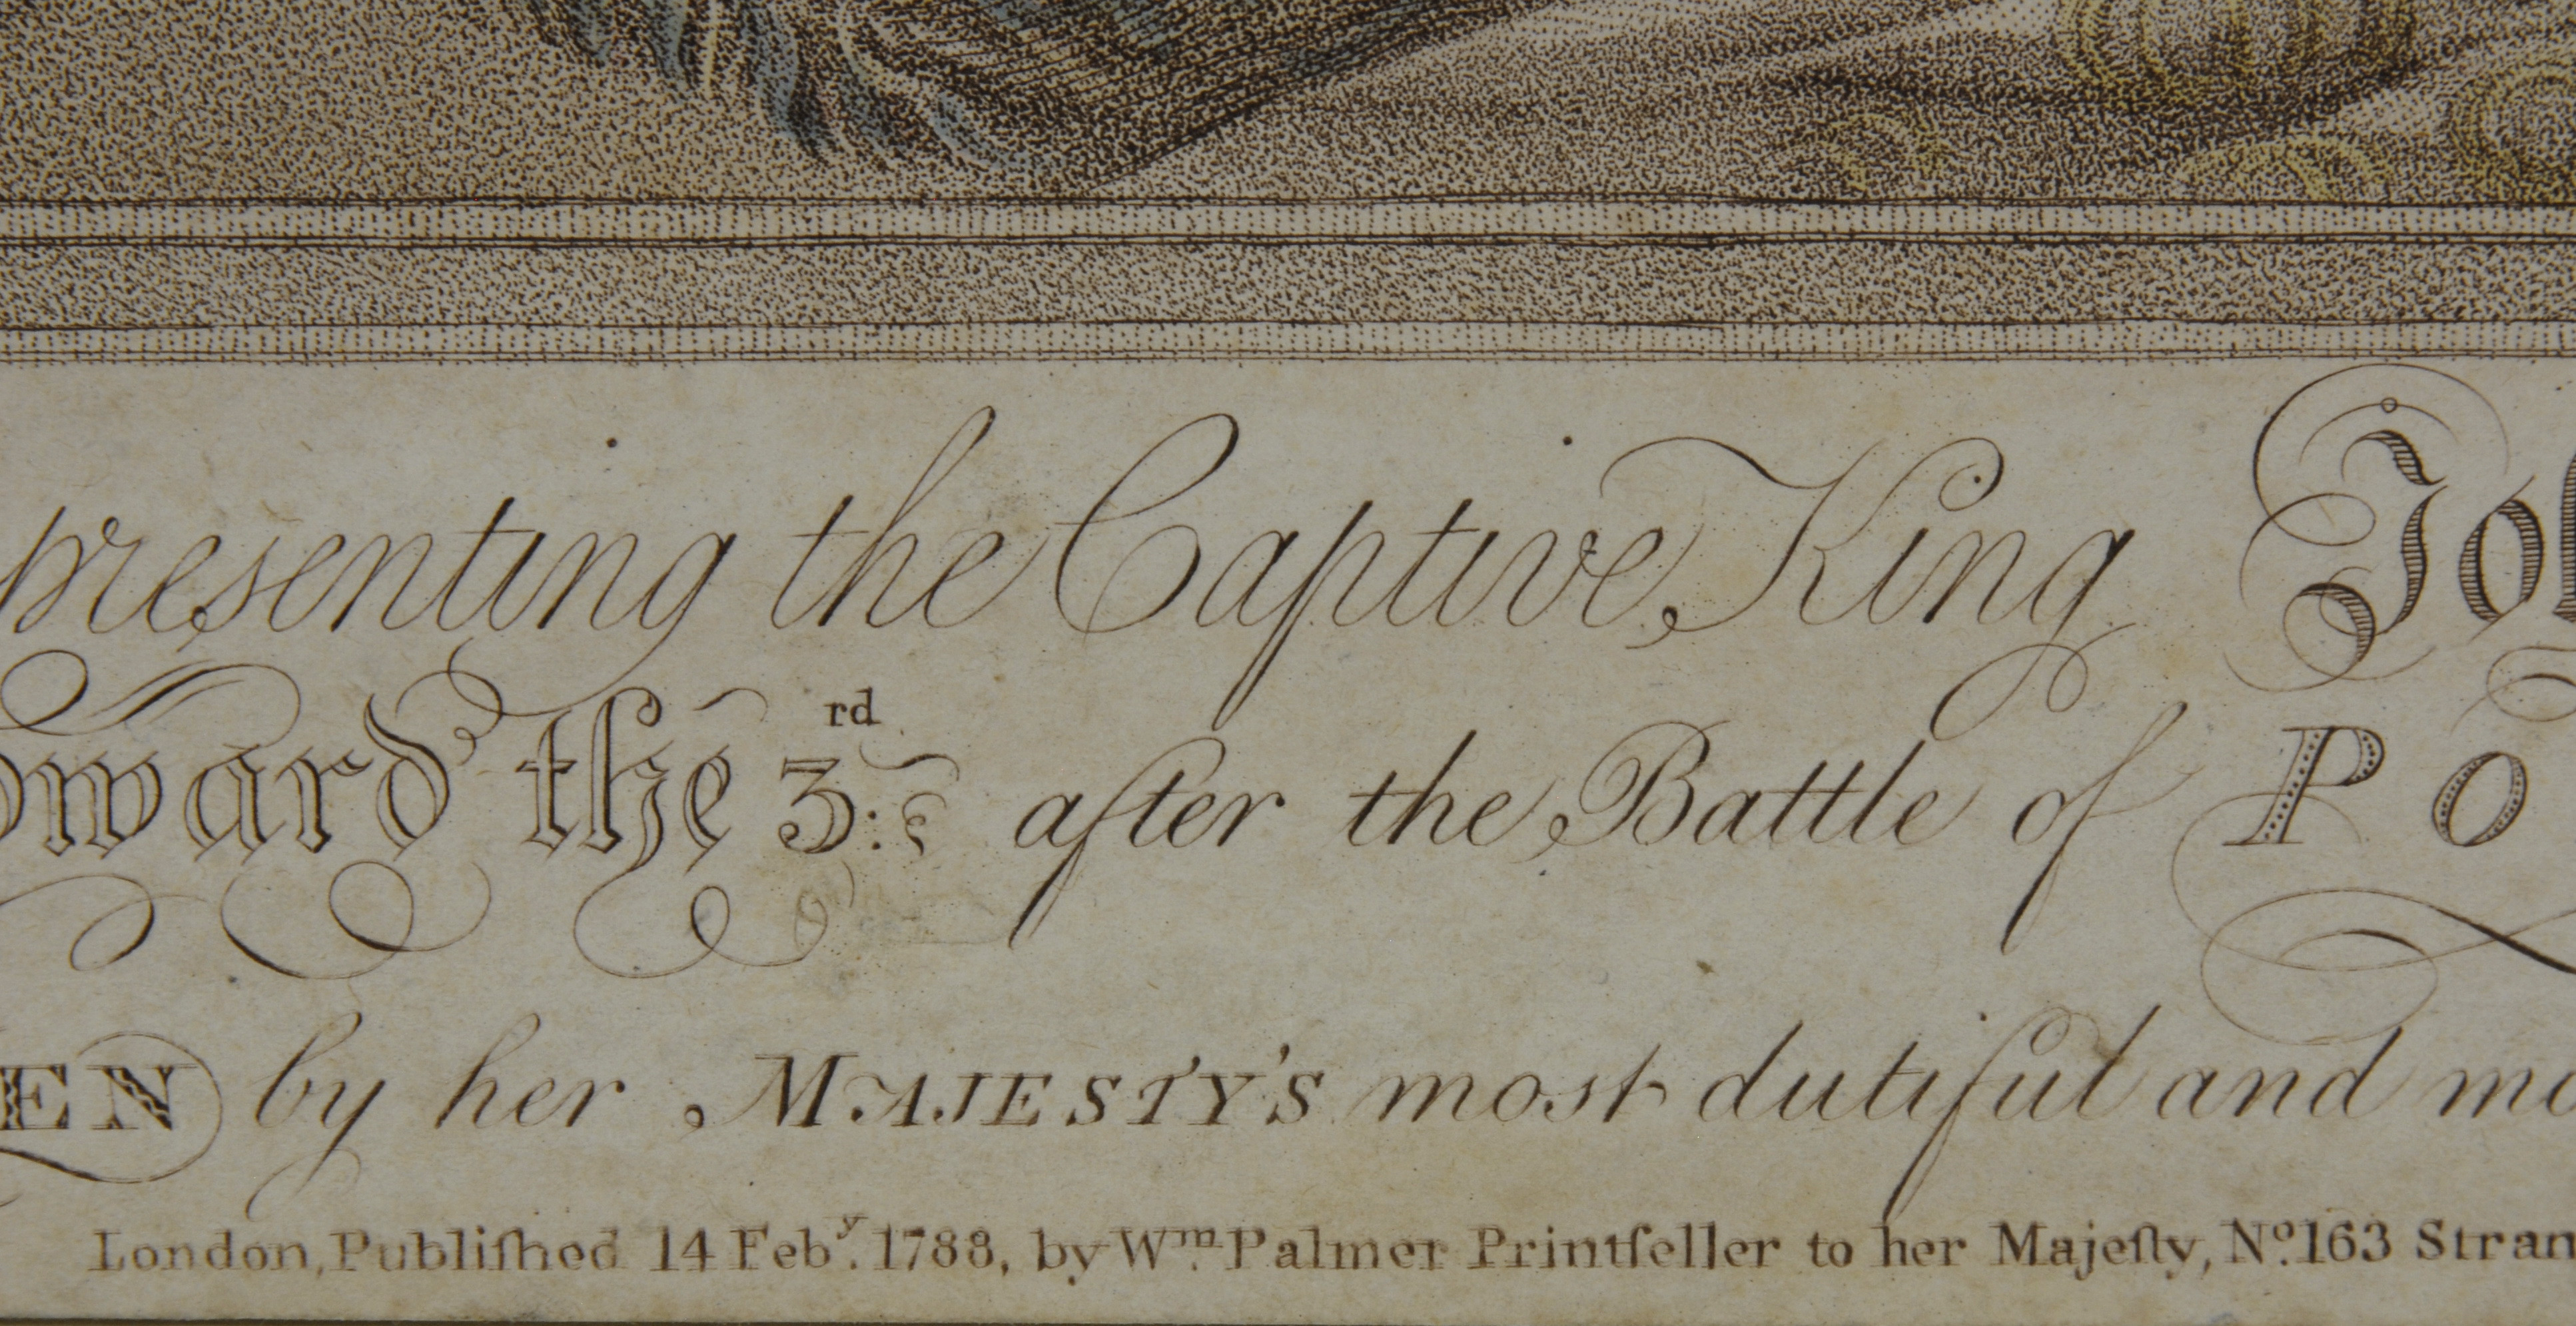 presenting the Captive King Joh
dward the 3.rd after the Battle of PO
EN by her MAJESTY'S most dutiful and mo
London, Publiſhed 14 Feby. 1788, by Wm. Palmer Printſeller to her Majeſty, No. 163 Stran